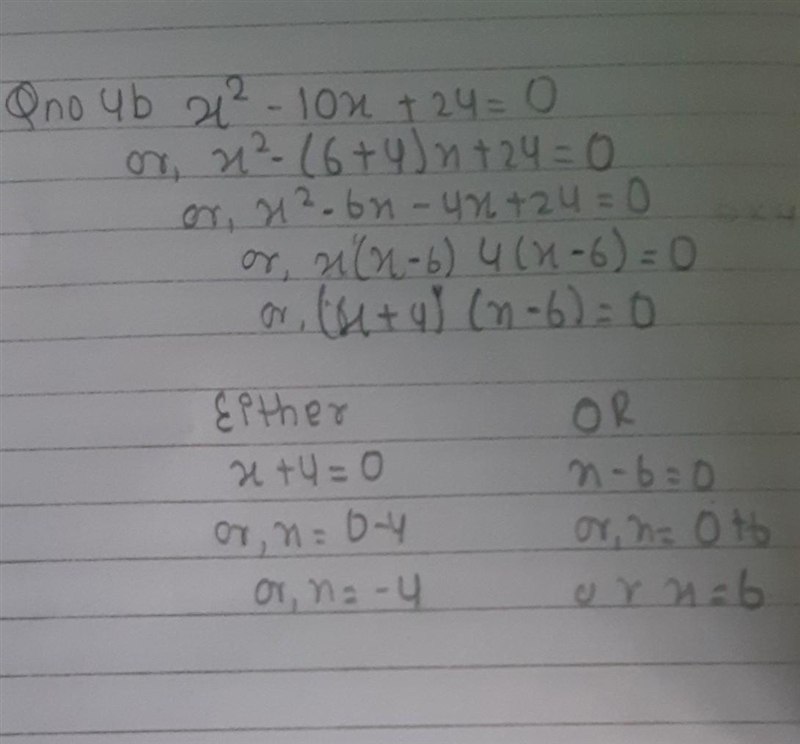 Qno 4b x² - 10x + 24 = 0
or, x² - (6+4)x + 24 = 0
or, x² - 6x - 4x + 24 = 0
or, x(x-6) 4(x-6) = 0
or, (x+4) (x-6) = 0
Either OR
x + 4 = 0 x - 6 = 0
or, x = 0-4 or, x = 0+6
or, x = -4 or x = 6